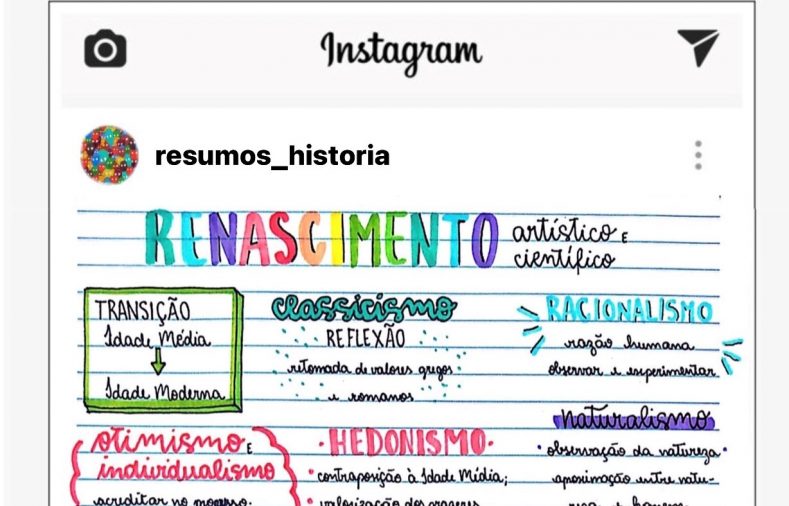 Instagram
resumos_historia
RENASCIMENTO artístico e científico
TRANSIÇÃO
Idade Média
Idade Moderna
classicismo
REFLEXÃO
retomada de valores gregos
e romanos
RACIONALISMO
razão humana
observar e experimentar
otimismo e
individualismo
acreditar no
HEDONISMO
• contraposição à Idade Média;
• valorização dos prazeres
naturalismo
• observação da natureza •
aproximação entre natu-
reza e homem